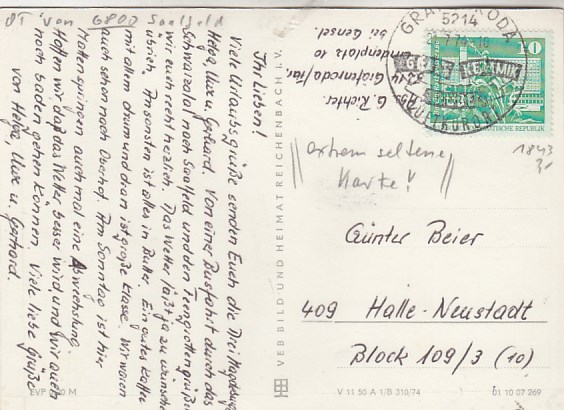 OT von 6800 Saalfeld
Ihr Lieben!
Viele Urlaubsgrüße senden Euch die Drei Magdeburger
Helga, Uwx u. Gerhard. Von einer Busfahrt durch das
Schwarzatal nach Saalfeld und den Feengrotten grüßen
wir euch recht herzlich. Das Wetter läßt ja zu wünschen
übrich. Ansonsten ist alles in Butter. Ein gutes Kaffee
mit allem drum und dran ist große Klasse. Wir waren
auch schon nach Oberhof. Am Sonntag ist hier
Hoffen wir, daß das Wetter besser wird und wir auch
noch baden gehen können. Viele liebe Grüße
von Helga, Uwx u. Gerhard.
EVP M
VEB BILD UND HEIMAT REICHENBACH I. V.
G. Richter
bei Gensel
Lindenplatz 10
5214
LUFTKURORT
10
DEUTSCHE REPUBLIK
1843
extrem seltene
Karte!
Günter Beier
409 Halle-Neustadt
Block 109/3 (10)
V 11 50 A 1/B 310/74
01 10 07 269